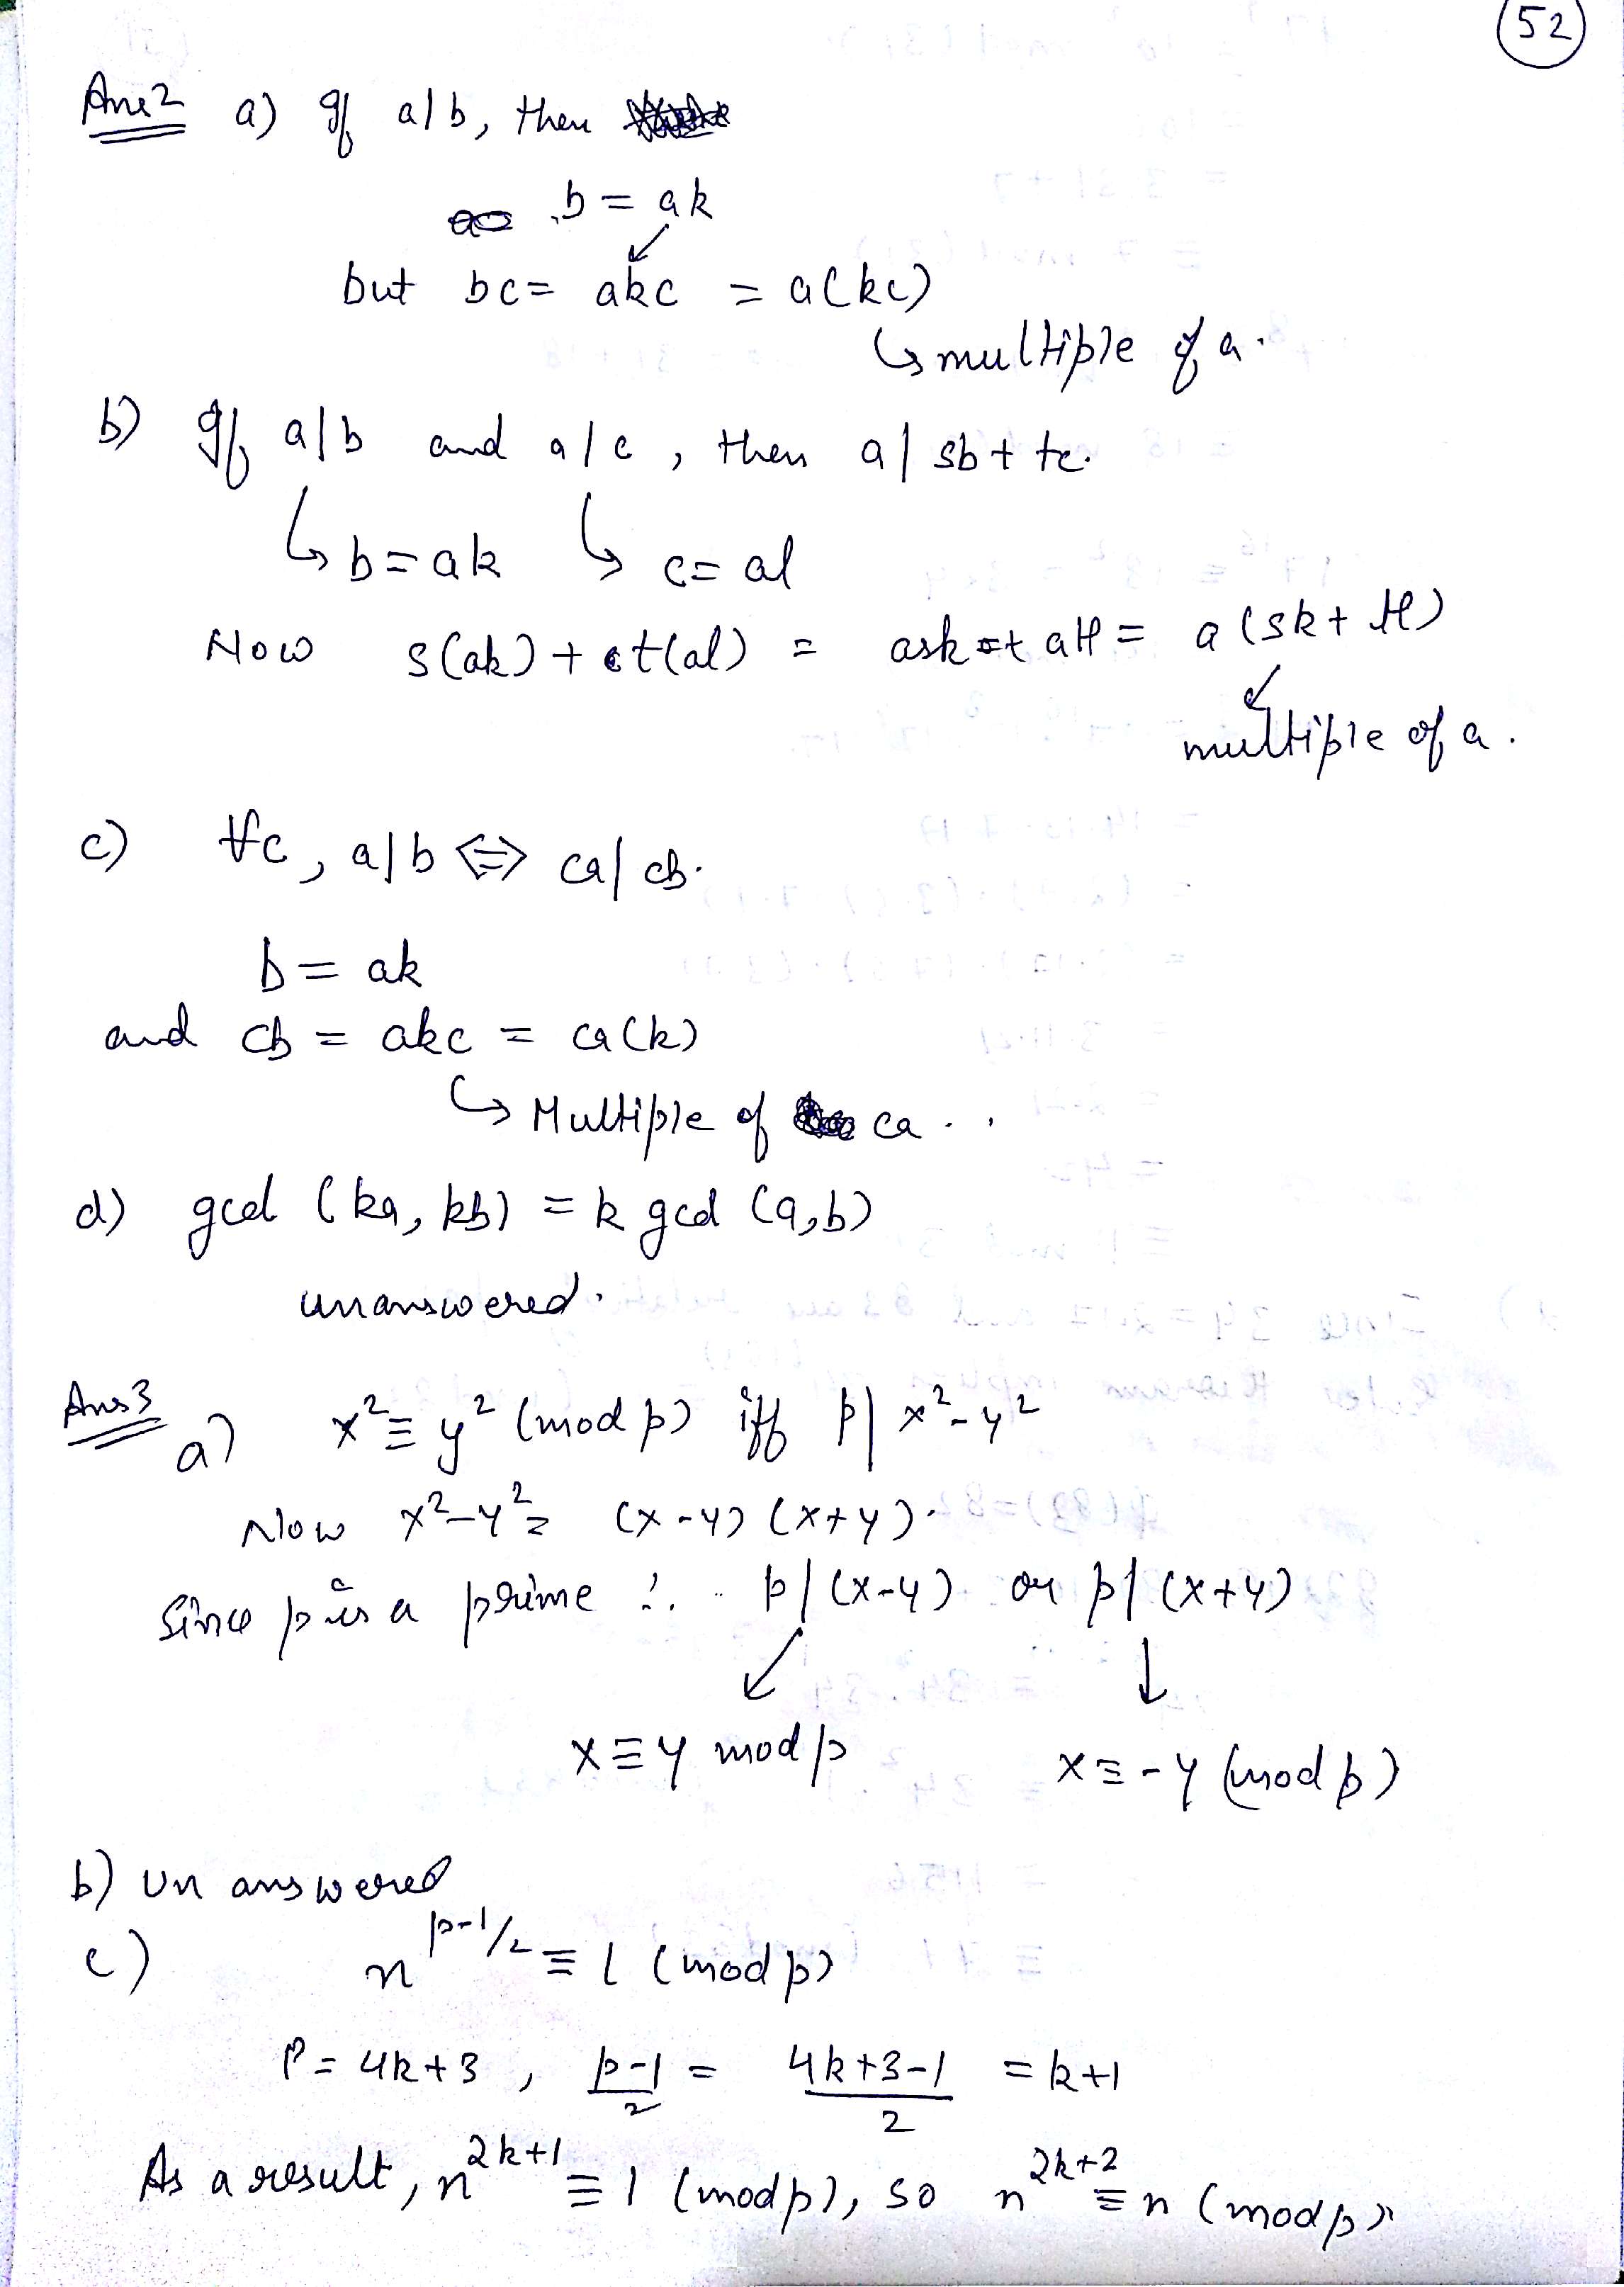 52
Ans 2 a) If a|b, then
b = ak
but bc = akc = a(kc)
↳ multiple of a.
b) If a|b and a|c, then a| sb + tc.
↳ b = ak ↳ c = al
Now s(ak) + t(al) = ask + atl = a(sk + tl)
multiple of a.
c) ∀c, a|b ⇔ ca| cb.
b = ak
and cb = akc = ca(k)
↳ Multiple of ca..
d) gcd (ka, kb) = k gcd (a,b)
unanswered.
Ans 3
a) x² ≡ y² (mod p) iff p| x²-y²
Now x²-y² = (x-y) (x+y).
Since p is a prime ∴ p|(x-y) or p|(x+y)
↙ ↓
x ≡ y mod p x ≡ -y (mod p)
b) Un answered
c) n^{p-1/2} ≡ 1 (mod p)
P = 4k+3, \frac{p-1}{2} = \frac{4k+3-1}{2} = k+1
As a result, n^{2k+1} ≡ 1 (mod p), so n^{2k+2} ≡ n (mod p)